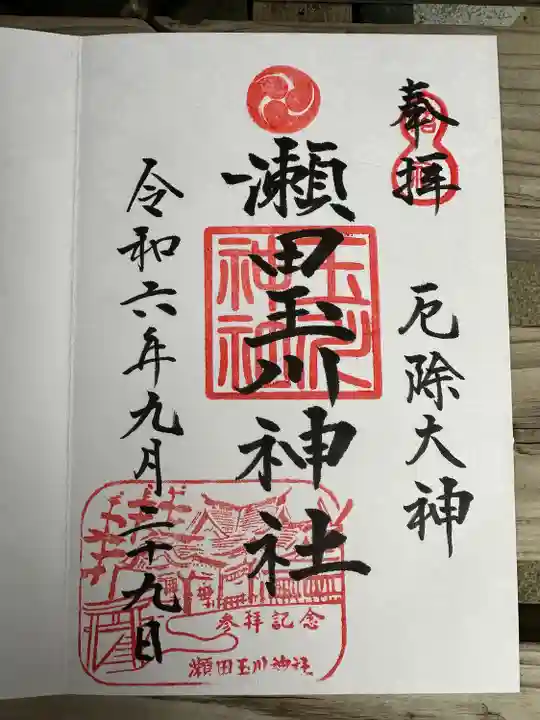 奉拝
厄除大神
瀬田玉川神社
玉川
神社
令和六年九月二十九日
参拝記念
瀬田玉川神社